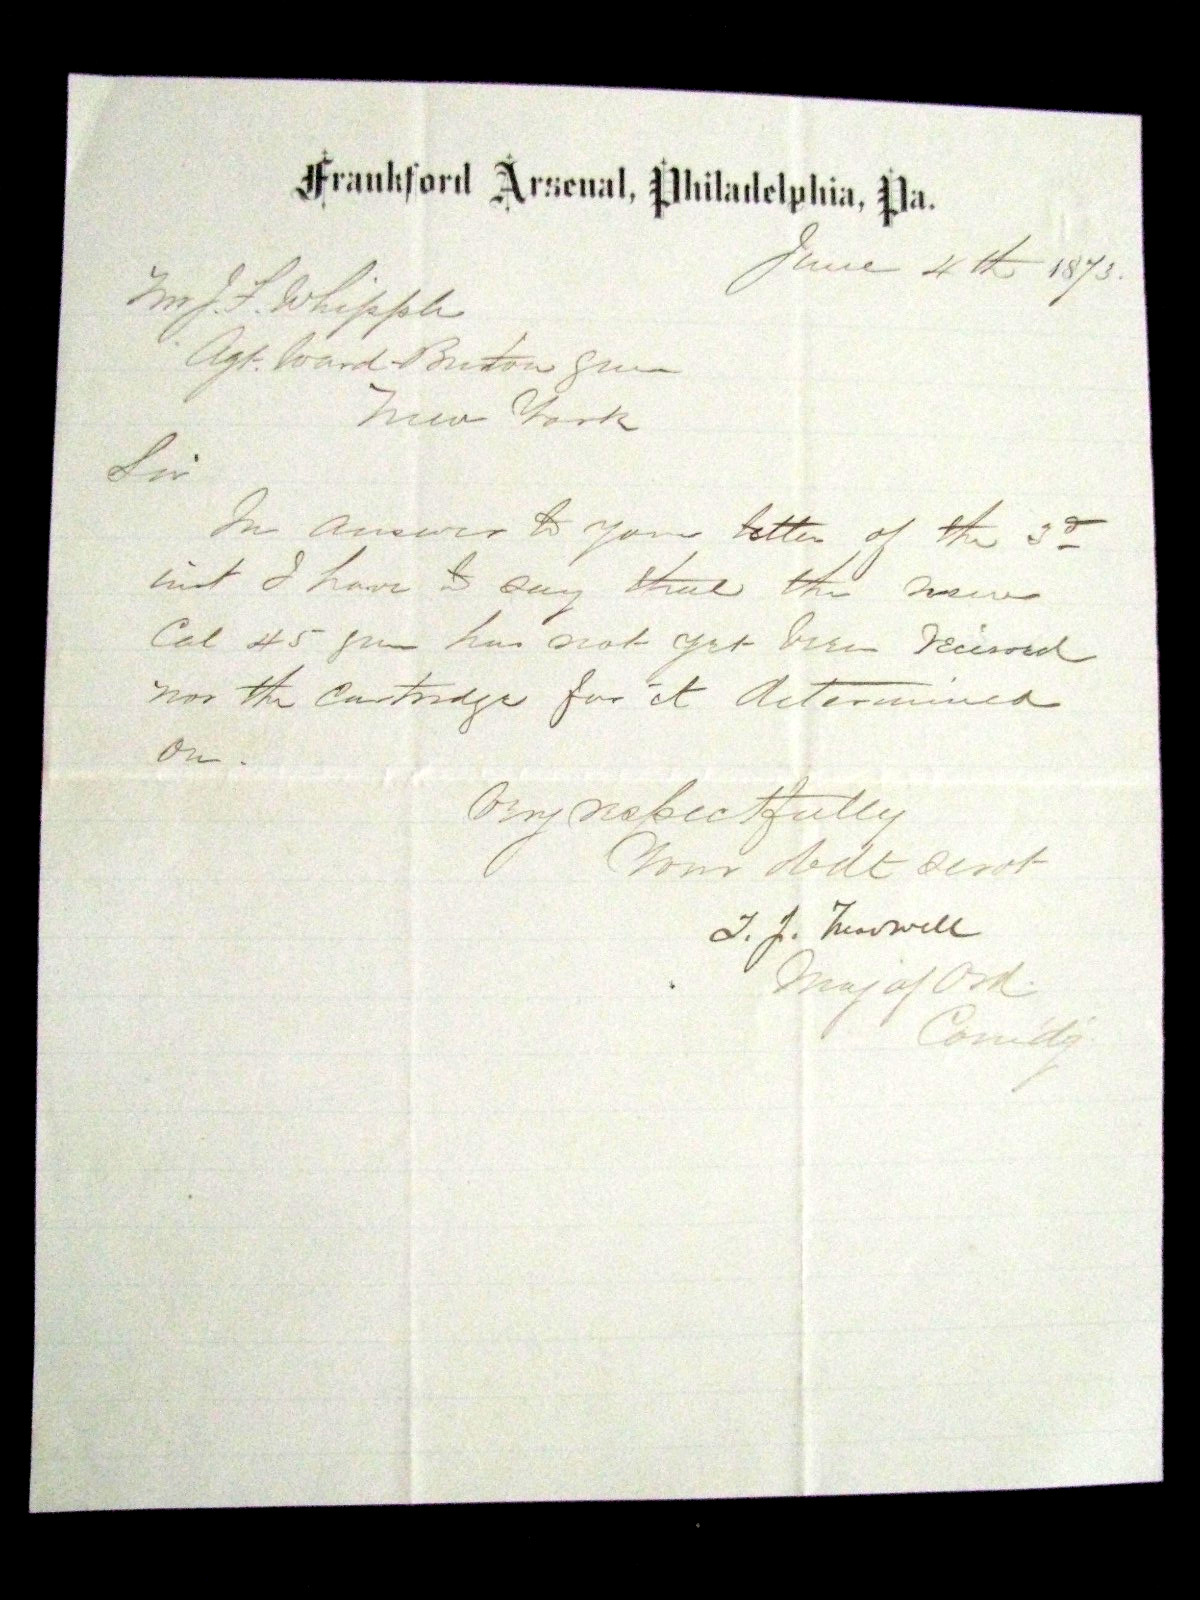 Frankford Arsenal, Philadelphia, Pa.
June 4th 1873.
Mr J. F. Whipple
Agt. Ward-Burton gun
New York
Sir
In answer to your letter of the 3d
inst I have to say that the new
Cal 45 gun has not yet been received
nor the cartridge for it determined
on.
Very respectfully
Your obdt servt
T. J. Treadwell
Maj of Ord.
Comdg.